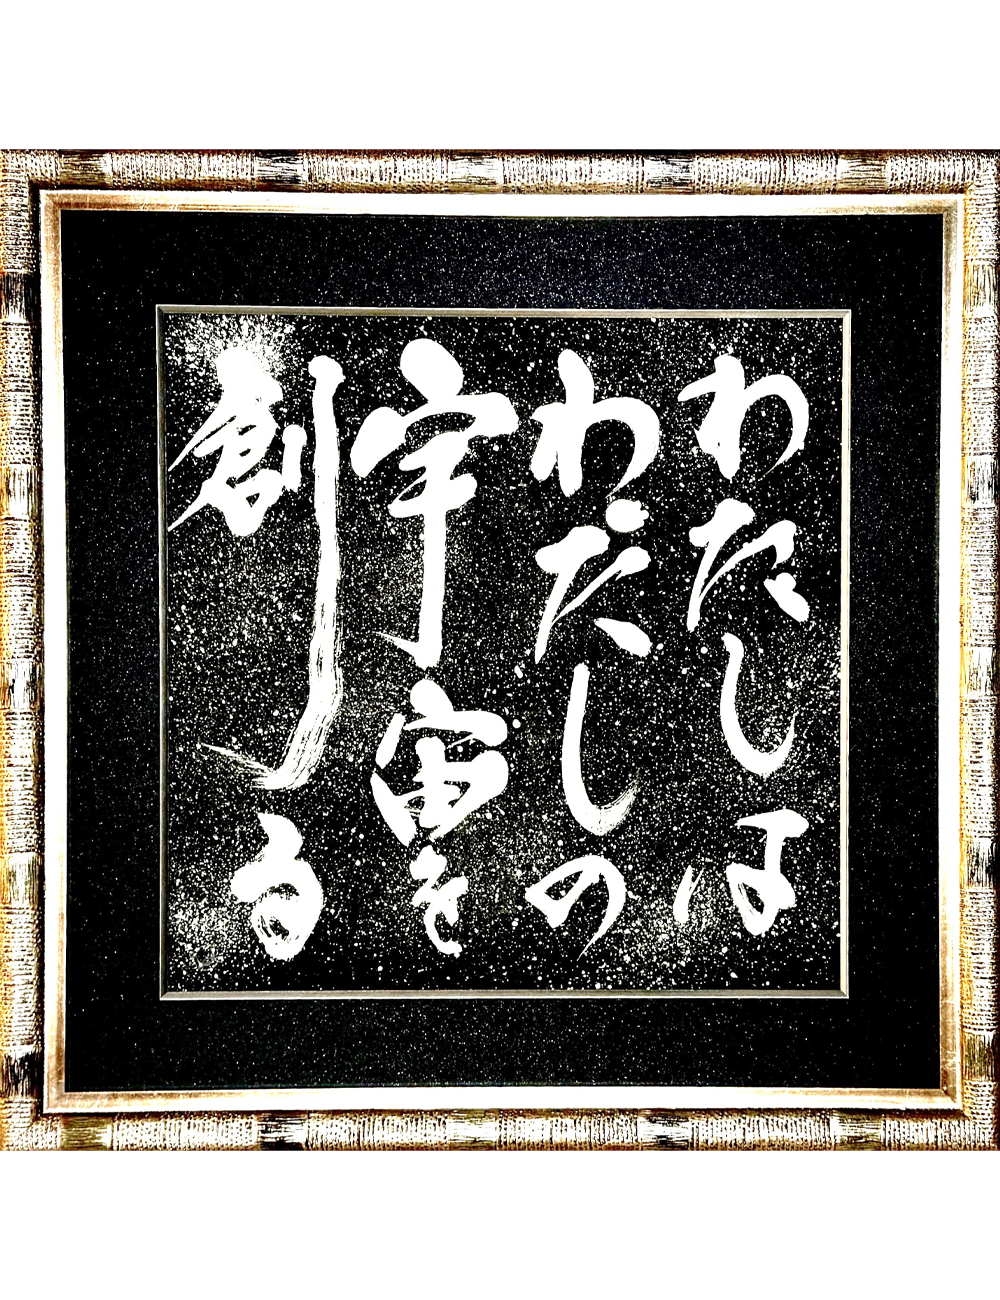 わたしは
わたしの
宇宙を
創る